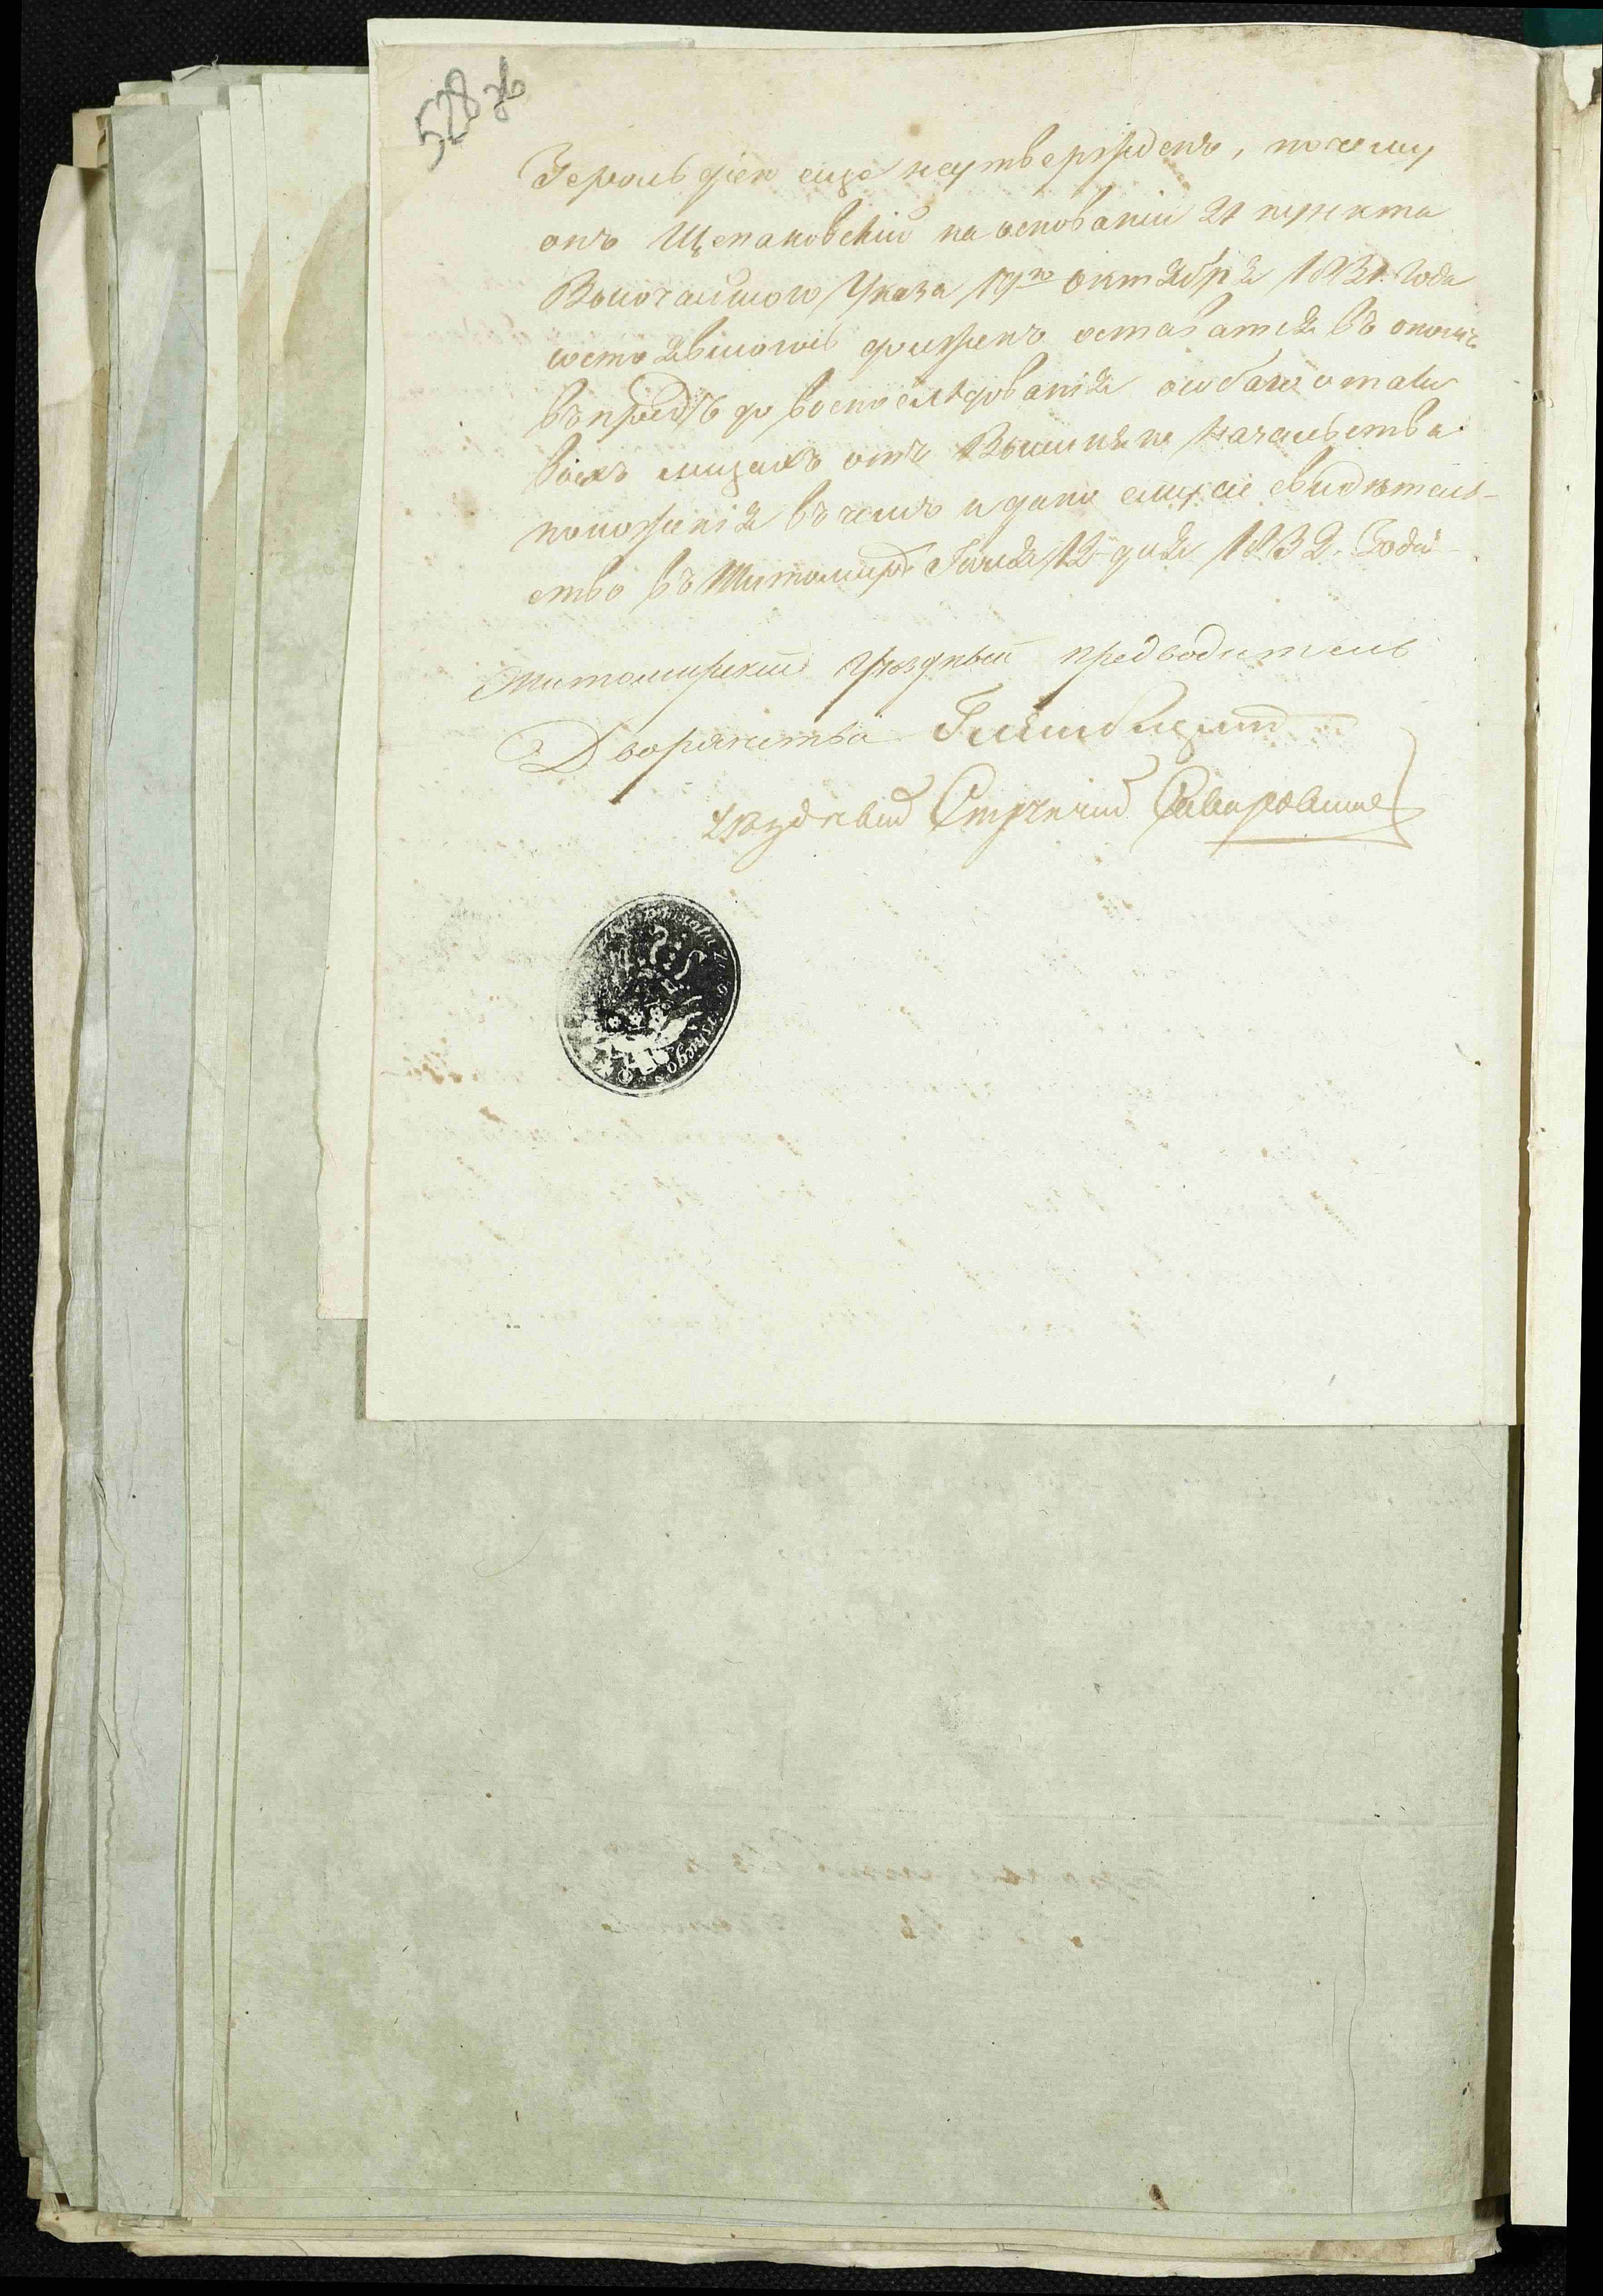 528 зв
Герольдіею еще неутвержденъ, почему
онъ Щепановскій на основаніи 21 пункта
Высочайшого Указа 19го Октября 1831. года
состоявшогось долженъ оставатся въ
впредь до воспослѣдованія особаго о таковыхъ
лицахъ отъ Вышняго Начальства
положенія въ чемъ и дано ему сіе свидѣтель-
ство въ Житомирѣ 12 дня 1832. Года
Житомирскій Уѣздный предводитель
Дворянства
Уѣздный Стряпчій